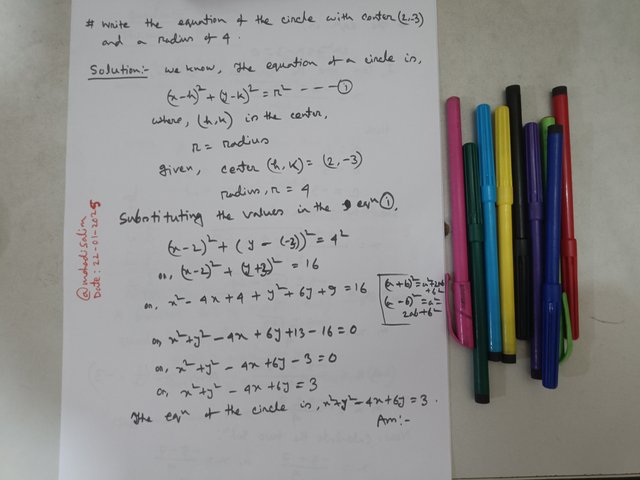 # Write the equation of the circle with center (2,-3)
and a radius of 4.
Solution:- We know, The equation of a circle is,
(x-h)² + (y-k)² = r² --- ①
where, (h,k) is the center,
r = radius
given, center (h,k) = (2,-3)
radius, r = 4
Substituting the values in the eqn ①,
(x-2)² + (y - (-3))² = 4²
or, (x-2)² + (y+3)² = 16
or, x² - 4x + 4 + y² + 6y + 9 = 16
(a+b)² = a²+2ab
+b²
(a-b)² = a²-
2ab+b²
or, x²+y² - 4x + 6y + 13 - 16 = 0
or, x²+y² - 4x + 6y - 3 = 0
or, x²+y² - 4x + 6y = 3
The eqn of the circle is, x²+y² - 4x + 6y = 3.
Ans:-
@mohadisalim
Date: 22-01-2025